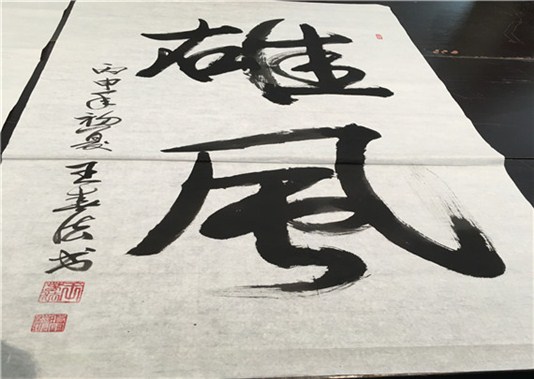 雄風
丙申年初夏王春法书